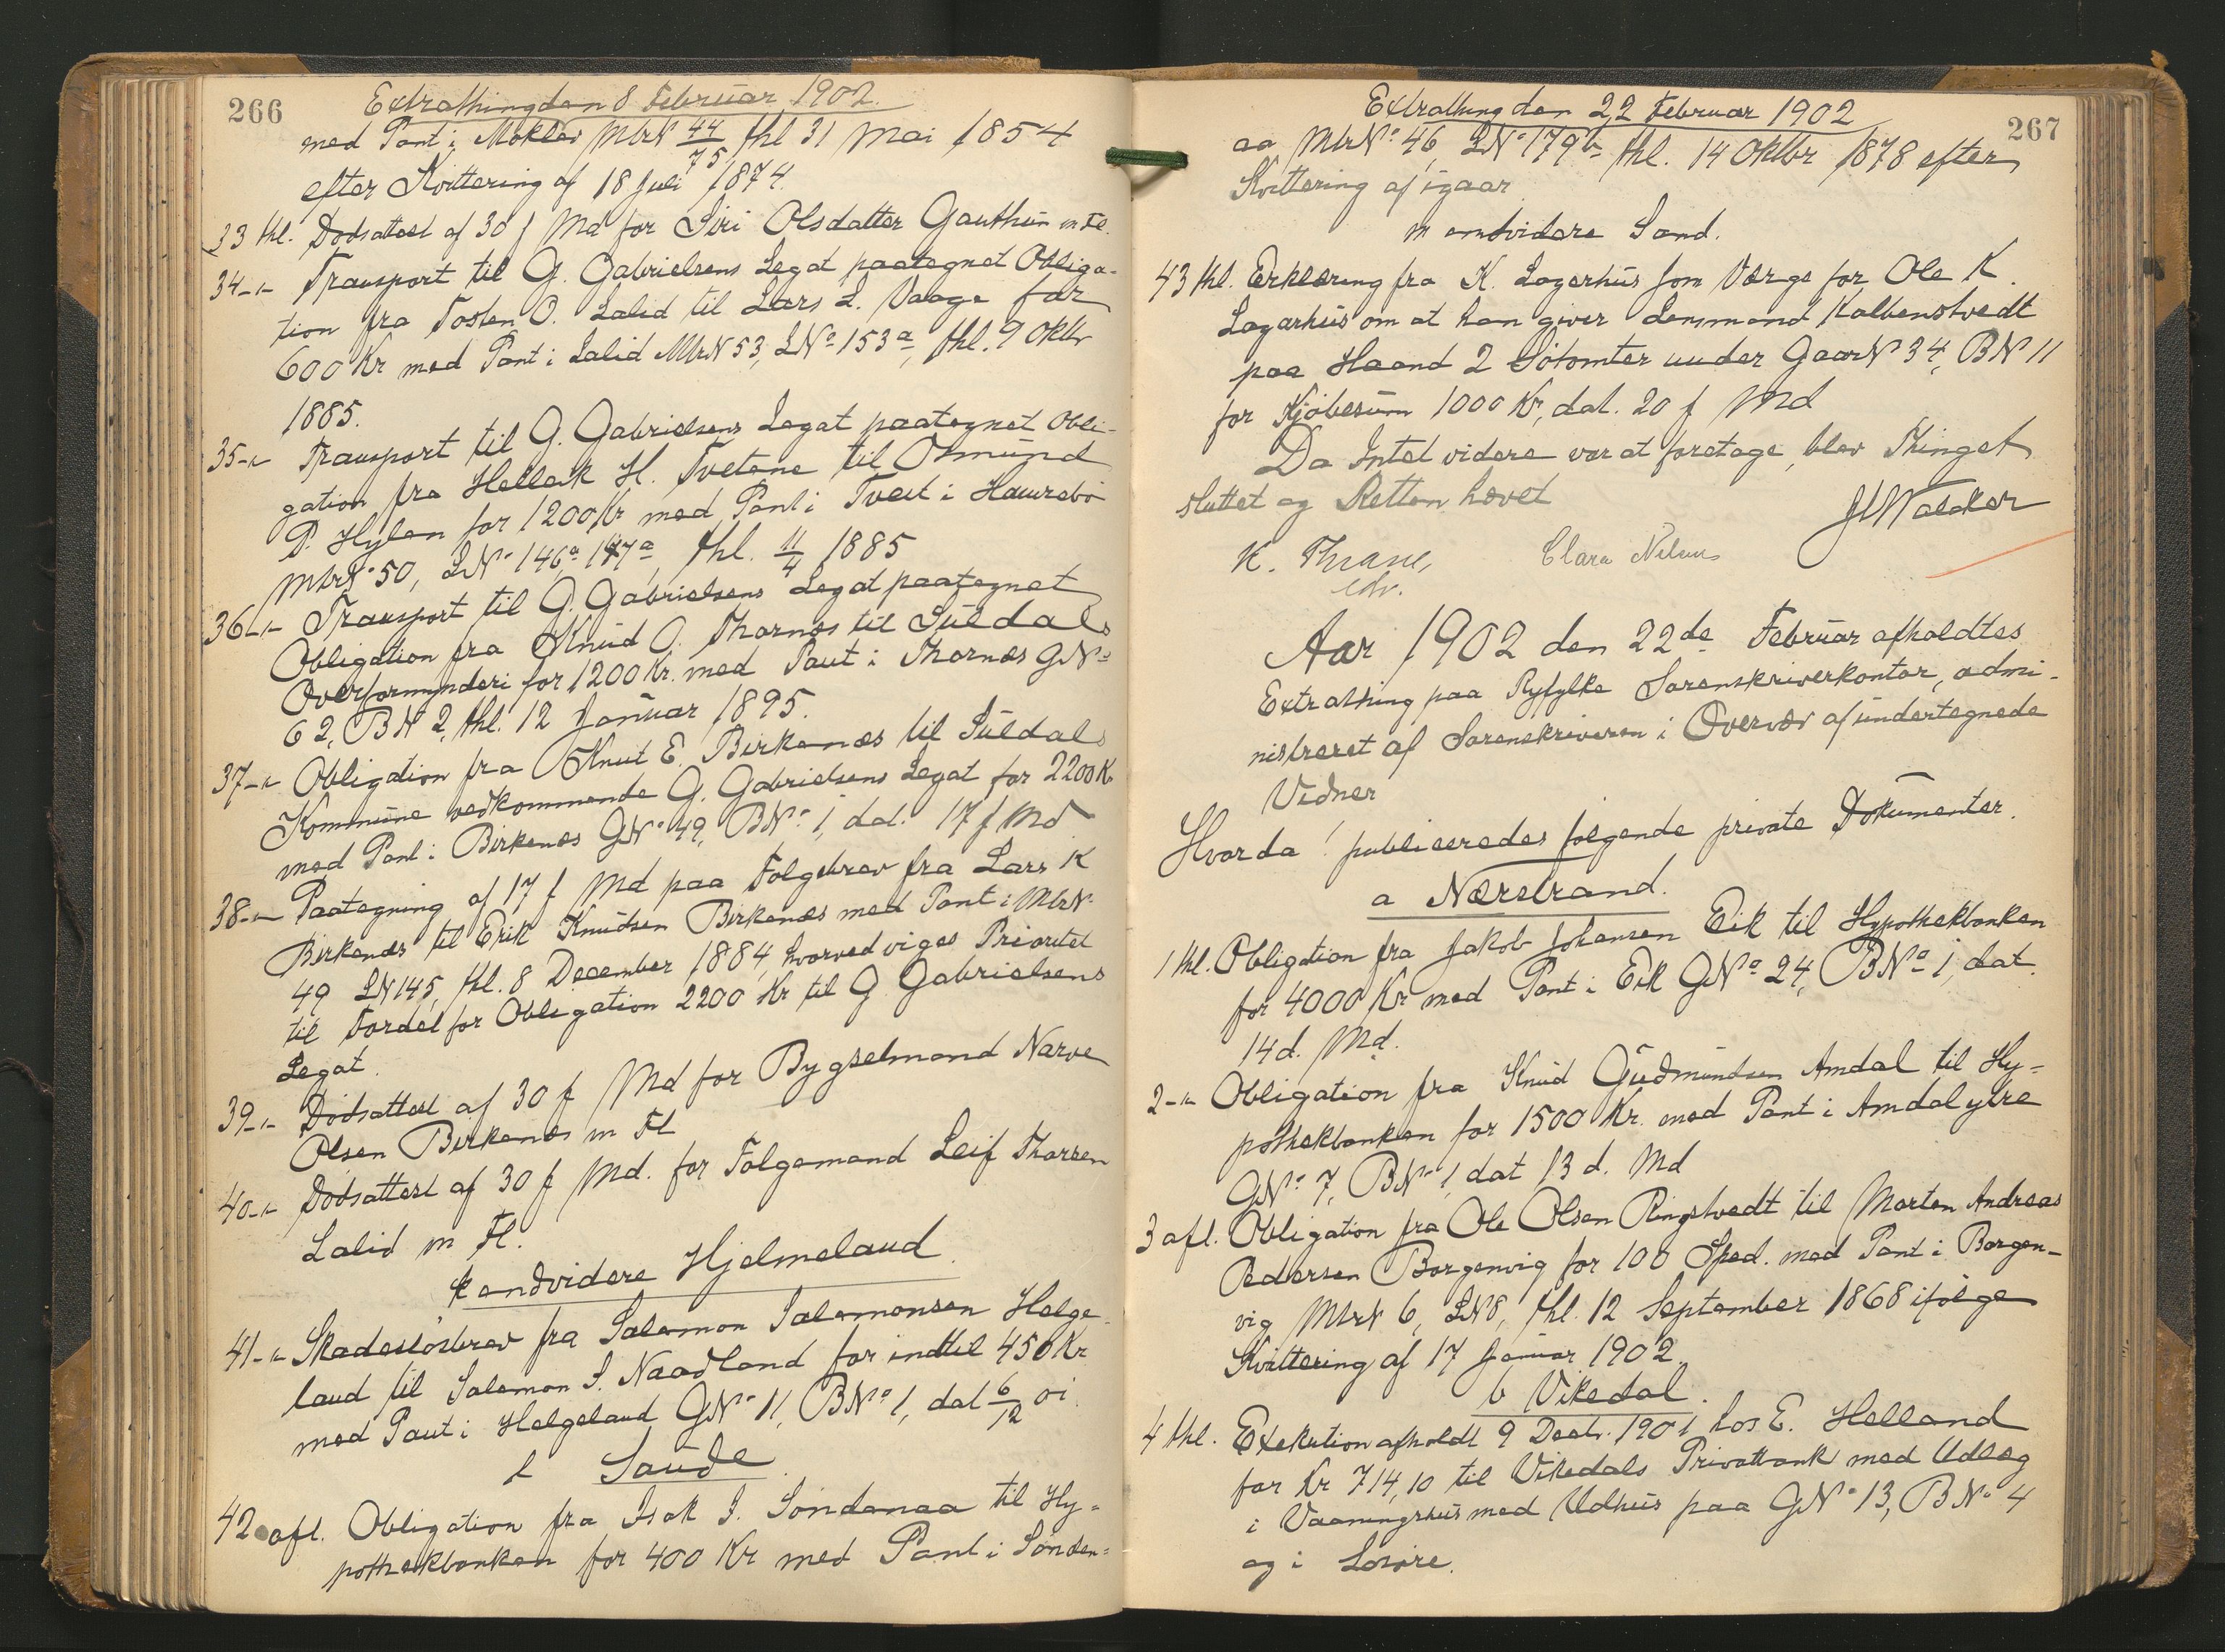 266
Extrathing den 8 Februar 1902.
med Pant i Moklev MtrN 44/75, thl 31 Mai 1854
efter Kvittering af 18 Juli 1874.
33 thl. Dødsattest af 30 f Md for Siri Olsdatter Gauthun m Fl.
34 -"- Transport til G. Gabrielsens Legat paategnet Obliga-
tion fra Tosten O. Lalid til Lars L. Vaage for
600 Kr med Pant i Lalid MtrN 53, LNo 153a, thl. 9 Oktbr
1885.
35 -"- Transport til G. Gabrielsens Legat paategnet Obli-
gation fra Helleik H. Tvetene til Osmund
P. Hylen for 1200 Kr med Pant i Tveit i Hamrabø
MtrNo 50, LNo 146a 147a, thl. 11/4 1885
36 -"- Transport til G. Gabrielsens Legat paategnet
Obligation fra Knud O. Thornæs til Suldals
Overformynderi for 1200 Kr. med Pant i Thornæs GNo
62, BN 2, thl. 12 Januar 1895.
37 -"- Obligation fra Knut E. Birkenæs til Suldals
Kommune vedkommende G. Gabrielsens Legat for 2200 Kr
med Pant i Birkenæs GNo 49, BNo 1, dat. 17 f Md
38 -"- Paategning af 17 f Md paa Følgebrev fra Lars K
Birkenæs til Erik Knudsen Birkenæs med Pant i MtrN
49 LN 145, thl. 8 December 1884, hvorved viges Prioritet
til Fordel for Obligation 2200 Kr til G. Gabrielsens
Legat.
39 -"- Dødsattest af 30 f Md for Bygselmand Narve
Olsen Birkenæs m Fl
40 -"- Dødsattest af 30 f Md. for Følgemand Leif Thorsen
Lalid m Fl.
k endvidere Hjelmeland.
41 -"- Skadesløsbrev fra Salomon Salomonsen Helge-
land til Salomon S. Naadland for indtil 450 Kr
med Pant i Helgeland GNo 11, BNo 1, dat 6/12 01.
l Saude.
42 afl. Obligation fra Isak I. Søndenaa til Hy-
pothekbanken for 400 Kr med Pant i Sønden-
267
Extrathing den 22 Februar 1902
aa MtrNo 46, LNo 179b thl. 14 Oktbr 1878 efter
Kvittering af igaar
m endvidere Sand.
43 thl. Erklæring fra K. Lagerhus som Værge for Ole K.
Lagerhus om at han giver Lensmand Kolbenstvedt
paa Haand 2 Søtomter under GaardN 34, BN 11
for Kjøbesum 1000 Kr, dat. 20 f Md
Da Intet videre var at foretage, blev Thinget
sluttet og Retten hævet
K. Thrane, Clara Nelsen
edv.
Aar 1902 den 22de Februar afholdtes
Extrathing paa Ryfylke Sorenskriverkontor, admi-
nistreret af Sorenskriveren i Overvær af undertegnede
Vidner
Hvorda! publiceredes følgende private Dokumenter.
a Nærstrand.
1 thl. Obligation fra Jakob Johansen Eik til Hypothekbanken
for 4000 Kr med Pant i Eik GNo 24, BNo 1, dat.
14 d. Md.
2 -"- Obligation fra Knud Gudmundsen Amdal til Hy-
pothekbanken for 1500 Kr. med Pant i Amdal ytre
GNo 7, BNo 1, dat 13 d. Md
3 afl. Obligation fra Ole Olsen Ringstvedt til Morten Andreas
Pedersen Borgenvig for 100 Sped. med Pant i Borgen-
vig MtrN 6, LN 8, thl. 12 September 1868 ifølge
Kvittering af 17 Januar 1902.
b Vikedal.
4 thl. Exekution afholdt 9 Decbr. 1901 hos E. Helland
for Kr 714,10 til Vikedals Privatbank med Udlæg
i Vaaningshus med Udhus paa GNo 13, BNo 4
og i Løsøre.